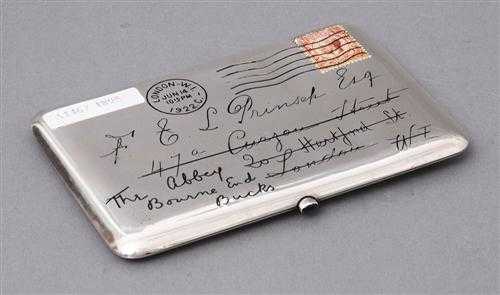 LONDON.W.1.
JUN 14
10:15PM
1922
F E L Prinsep Esq
47a Curzon Street
20 Hertford St
The Abbey London W1
Bourne End
Bucks